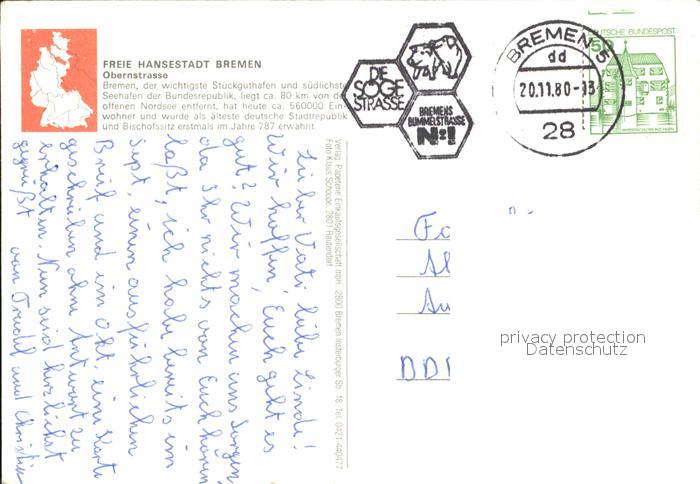 FREIE HANSESTADT BREMEN
Obernstrasse
Bremen, der wichtigste Stückguthafen und südlichste
Seehafen der Bundesrepublik, liegt ca. 80 km von der
offenen Nordsee entfernt, hat heute ca. 560000 Ein-
wohner und wurde als älteste deutsche Stadtrepublik
und Bischofssitz erstmals im Jahre 787 erwähnt.
DIE
SÖGE
STRASSE
BREMENS
BUMMELSTRASSE
N:1
BREMEN 5
dd
20.11.80-13
28
DEUTSCHE BUNDESPOST
50
Verlag: Papeterie Einkaufsgesellschaft mbH, 2800 Bremen, Insterburger Str. 18, Tel. 0421-440477
Foto Klaus Schoppe, 2801 Rautendorf
Lieber Vati, liebe Linde!
Wir hoffen, Euch geht es
gut? Wir machen uns Sorgen,
da Ihr nichts von Euch hören
laßt, ich habe bereits im
Sept. einen ausführlichen
Brief und im Okt. eine Karte
geschrieben ohne Antwort zu
erhalten. Nun seid herzlichst
gegrüßt von Trudel und Christian
Fo
Al
Au
DDR
privacy protection
Datenschutz